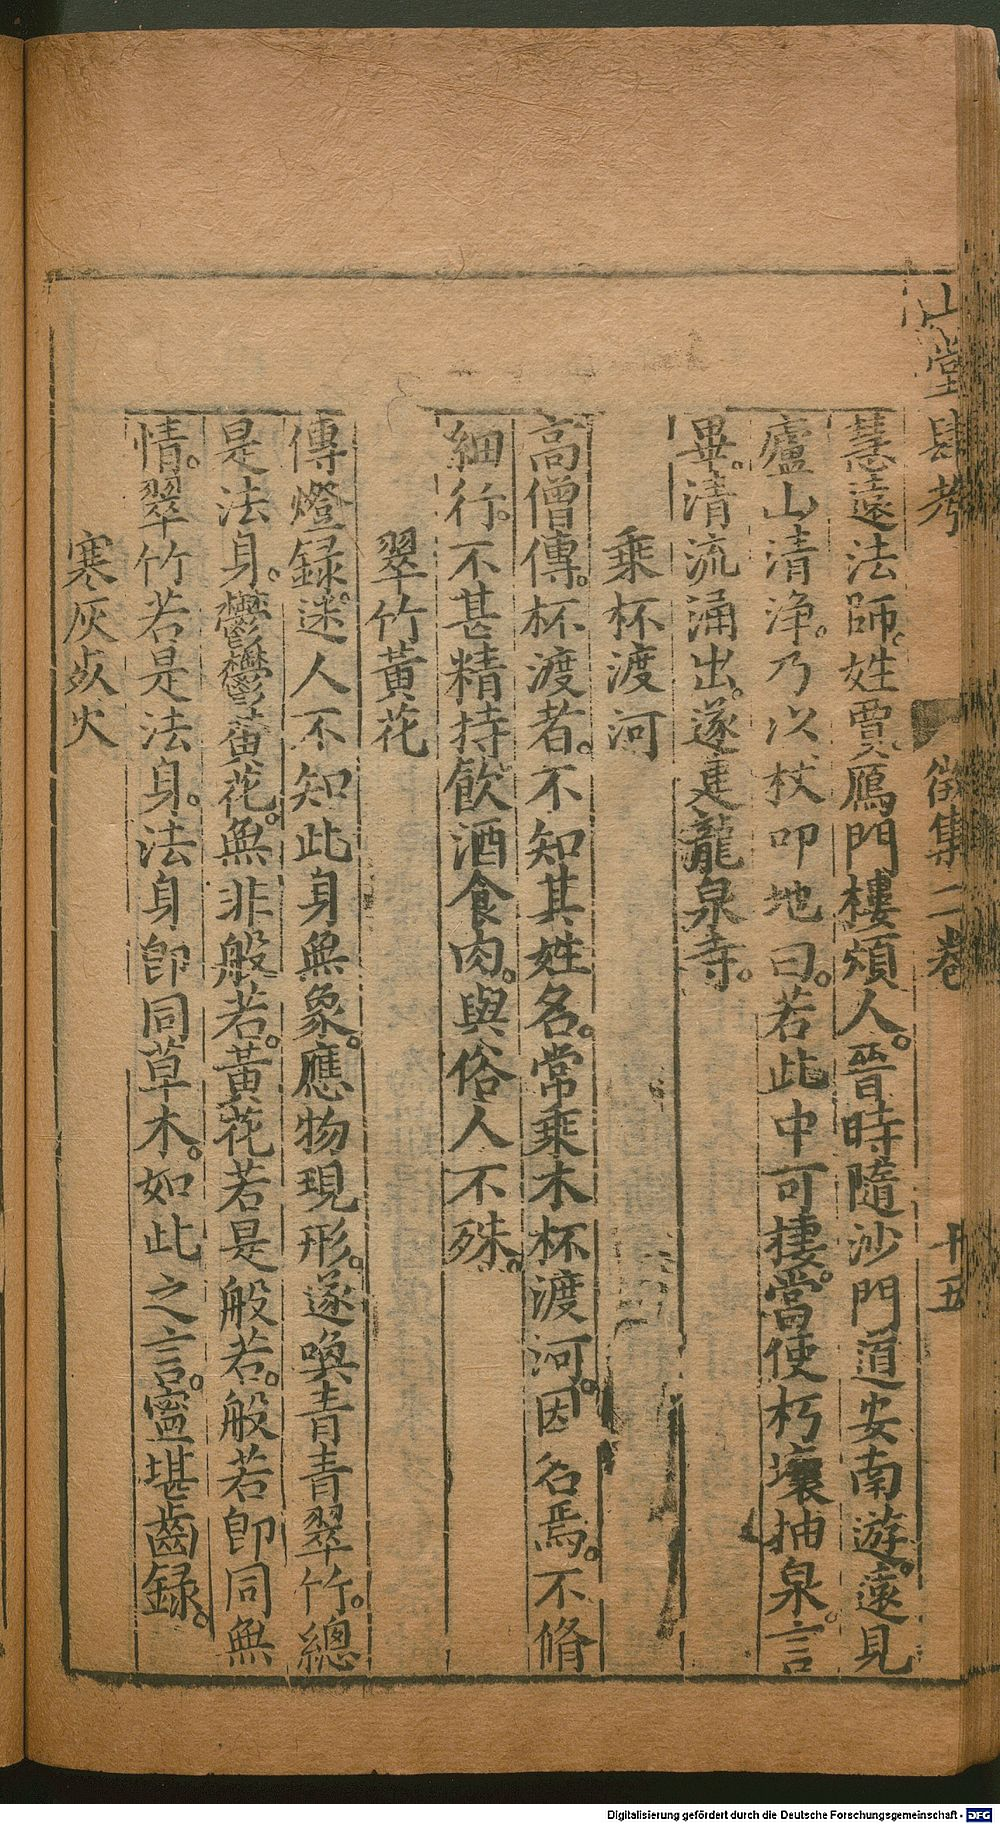 山堂肆考 徵集二卷 十五
慧遠法師。姓賈。鴈門樓煩人。晉時隨沙門道安南遊。遠見
廬山清浄。乃以杖叩地曰。若此中可棲。當使朽壤抽泉。言
畢。清流涌出。遂建龍泉寺。
乘杯渡河
高僧傳。杯渡者。不知其姓名。常乘木杯渡河。因名焉。不脩
細行。不甚精持。飲酒食肉。與俗人不殊。
翠竹黃花
傳燈録。迷人不知此身無象。應物現形。遂喚青青翠竹。總
是法身。鬱鬱黃花。無非般若。黃花若是般若。般若卽同無
情。翠竹若是法身。法身卽同草木。如此之言。寧堪齒録。
寒灰㸃火
Digitalisierung gefördert durch die Deutsche Forschungsgemeinschaft - DFG